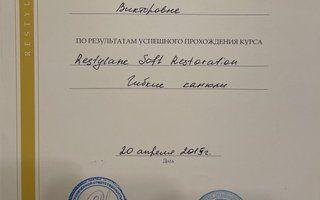 RESTYL
Викторовне
ПО РЕЗУЛЬТАТАМ УСПЕШНОГО ПРОХОЖДЕНИЯ КУРСА
Restylane Soft Restoration
Гибкие канюли
20 апреля 2019г.
Дата